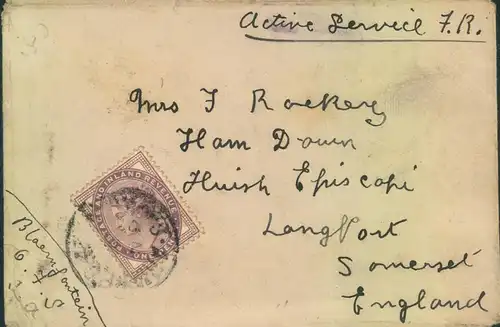 Active Service F.R.
Mrs F Rockery
Ham Down
Huish Episcopi
Langport
Somerset
England
INLAND REVENUE
Bloemfontein
6